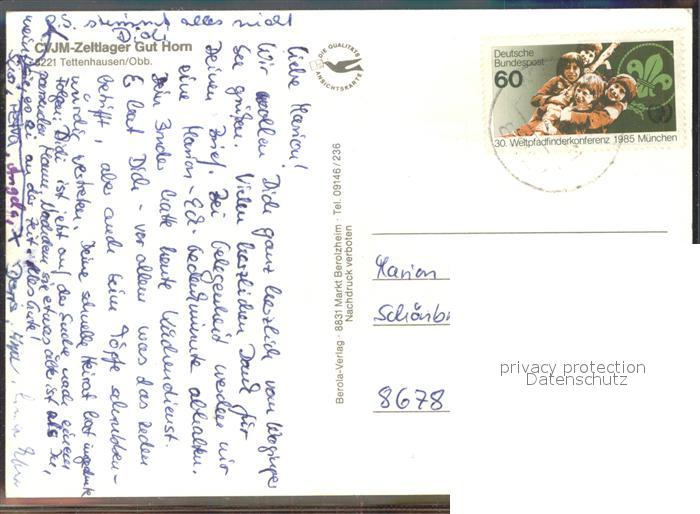 P.S. stimmt alles nicht
Didi
CVJM-Zeltlager Gut Horn
8221 Tettenhausen/Obb.
DIE QUALITÄTS
ANSICHTSKARTE
Liebe Marion!
Wir wollen Dich ganz herzlich vom
See grüßen. Vielen herzlichen Dank für
Deinen Brief. Bei Gelegenheit werden wir
eine Marion-Gedenkminute abhalten.
Dein Bruder hatte heute Küchendienst.
Er hat Dich - vor allem was das Reden
betrifft, aber auch beim Töpfe schrubben -
würdig vertreten. Deine schnelle Heirat hat ungeahnte
Folgen: Didi ist jetzt auf der Suche nach einem
passenden Mann. Nachdem sie etwas älter ist als Du,
meint sie, es sei an der Zeit. Alles Gute!
Petra, Angela,
Berola-Verlag · 8831 Markt Berolzheim · Tel. 09146/236
Nachdruck verboten
Deutsche
Bundespost
60
30. Weltpfadfinderkonferenz 1985 München
Marion
Schönb
8678
privacy protection
Datenschutz